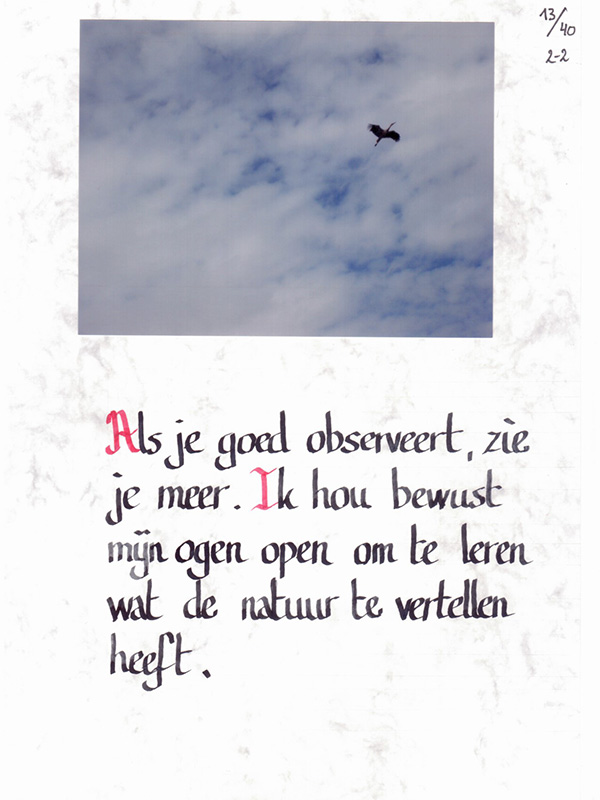 13/40
2-2
Als je goed observeert, zie
je meer. Ik hou bewust
mijn ogen open om te leren
wat de natuur te vertellen
heeft.